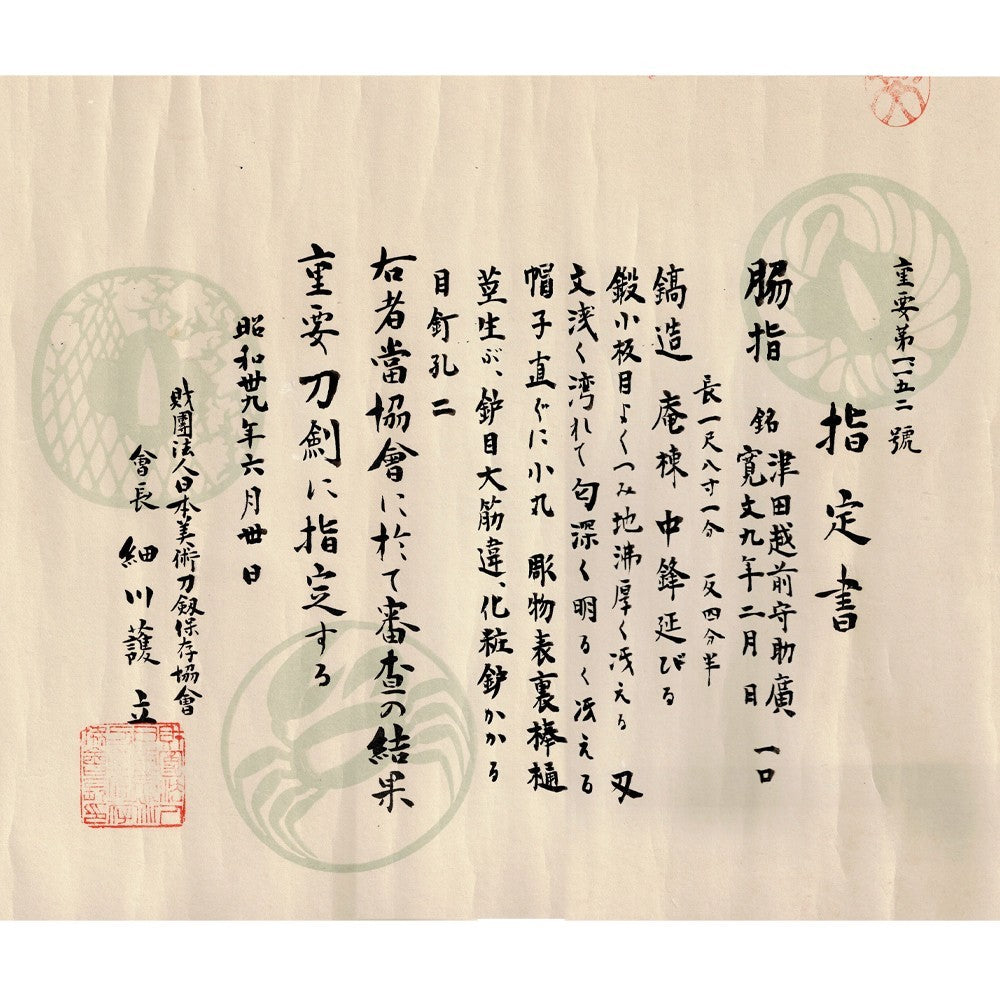 重要第一一五二號
指定書
脇指 銘 津田越前守助廣 一口
寛文九年二月日
長一尺八寸一分 反四分半
鎬造 庵棟 中鋒延びる
鍛小板目よくつみ地沸厚く冴える 刃
文浅く湾れて匂深く明るく冴える
帽子直ぐに小丸 彫物表裏棒樋
茎生ぶ、鈩目大筋違、化粧鈩かかる
目釘孔二
右者當協會に於て審査の結果
重要刀剣に指定する
昭和卅九年六月卅日
財團法人日本美術刀剱保存協會
會長 細川護立